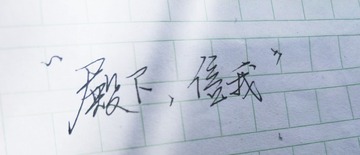 “殿下，信我”